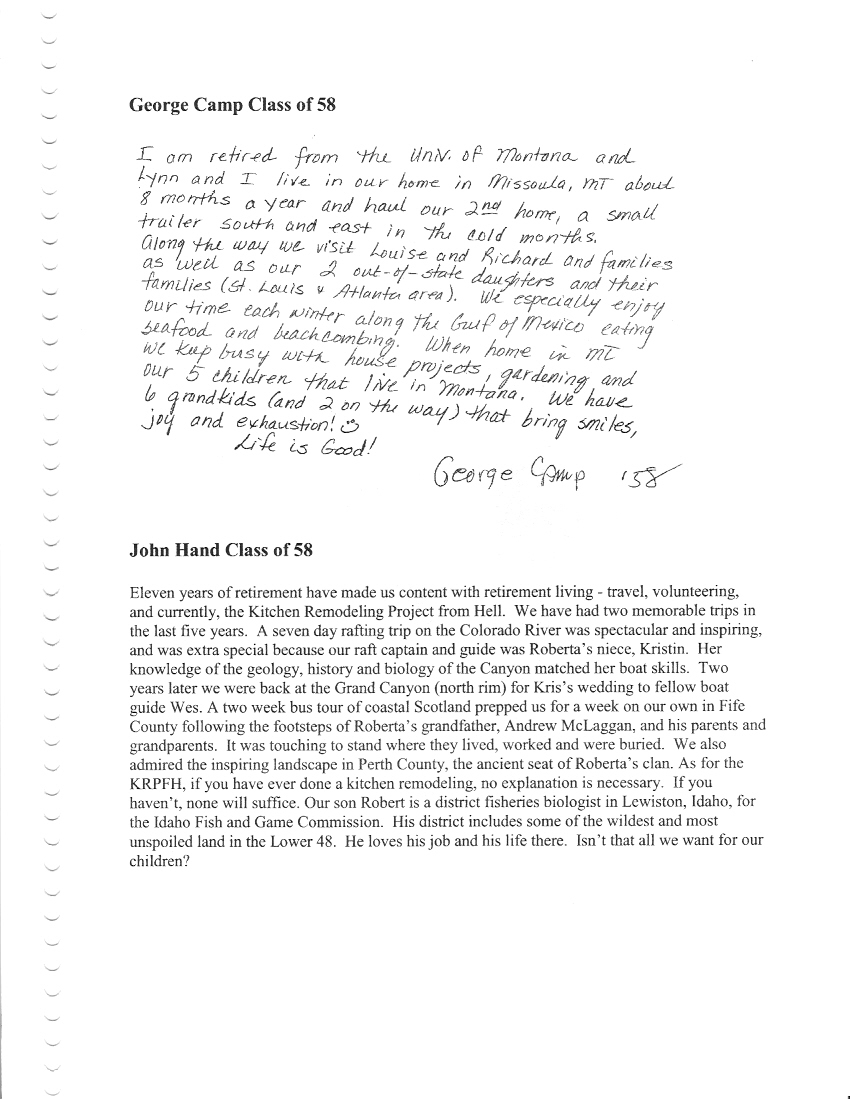 George Camp Class of 58
I am retired from the Univ. of Montana and
Lynn and I live in our home in Missoula, MT about
8 months a year and haul our 2nd home, a small
trailer south and east in the cold months.
Along the way we visit Louise and Richard and families
as well as our 2 out-of-state daughters and their
families (St. Louis & Atlanta area). We especially enjoy
our time each winter along the Gulf of Mexico eating
seafood and beachcombing. When home in MT
we keep busy with house projects, gardening and
our 5 children that live in Montana. We have
6 grandkids (and 2 on the way) that bring smiles,
joy and exhaustion! ☺
Life is Good!
George Camp '58
John Hand Class of 58
Eleven years of retirement have made us content with retirement living - travel, volunteering,
and currently, the Kitchen Remodeling Project from Hell. We have had two memorable trips in
the last five years. A seven day rafting trip on the Colorado River was spectacular and inspiring,
and was extra special because our raft captain and guide was Roberta's niece, Kristin. Her
knowledge of the geology, history and biology of the Canyon matched her boat skills. Two
years later we were back at the Grand Canyon (north rim) for Kris's wedding to fellow boat
guide Wes. A two week bus tour of coastal Scotland prepped us for a week on our own in Fife
County following the footsteps of Roberta's grandfather, Andrew McLaggan, and his parents and
grandparents. It was touching to stand where they lived, worked and were buried. We also
admired the inspiring landscape in Perth County, the ancient seat of Roberta's clan. As for the
KRPFH, if you have ever done a kitchen remodeling, no explanation is necessary. If you
haven't, none will suffice. Our son Robert is a district fisheries biologist in Lewiston, Idaho, for
the Idaho Fish and Game Commission. His district includes some of the wildest and most
unspoiled land in the Lower 48. He loves his job and his life there. Isn't that all we want for our
children?